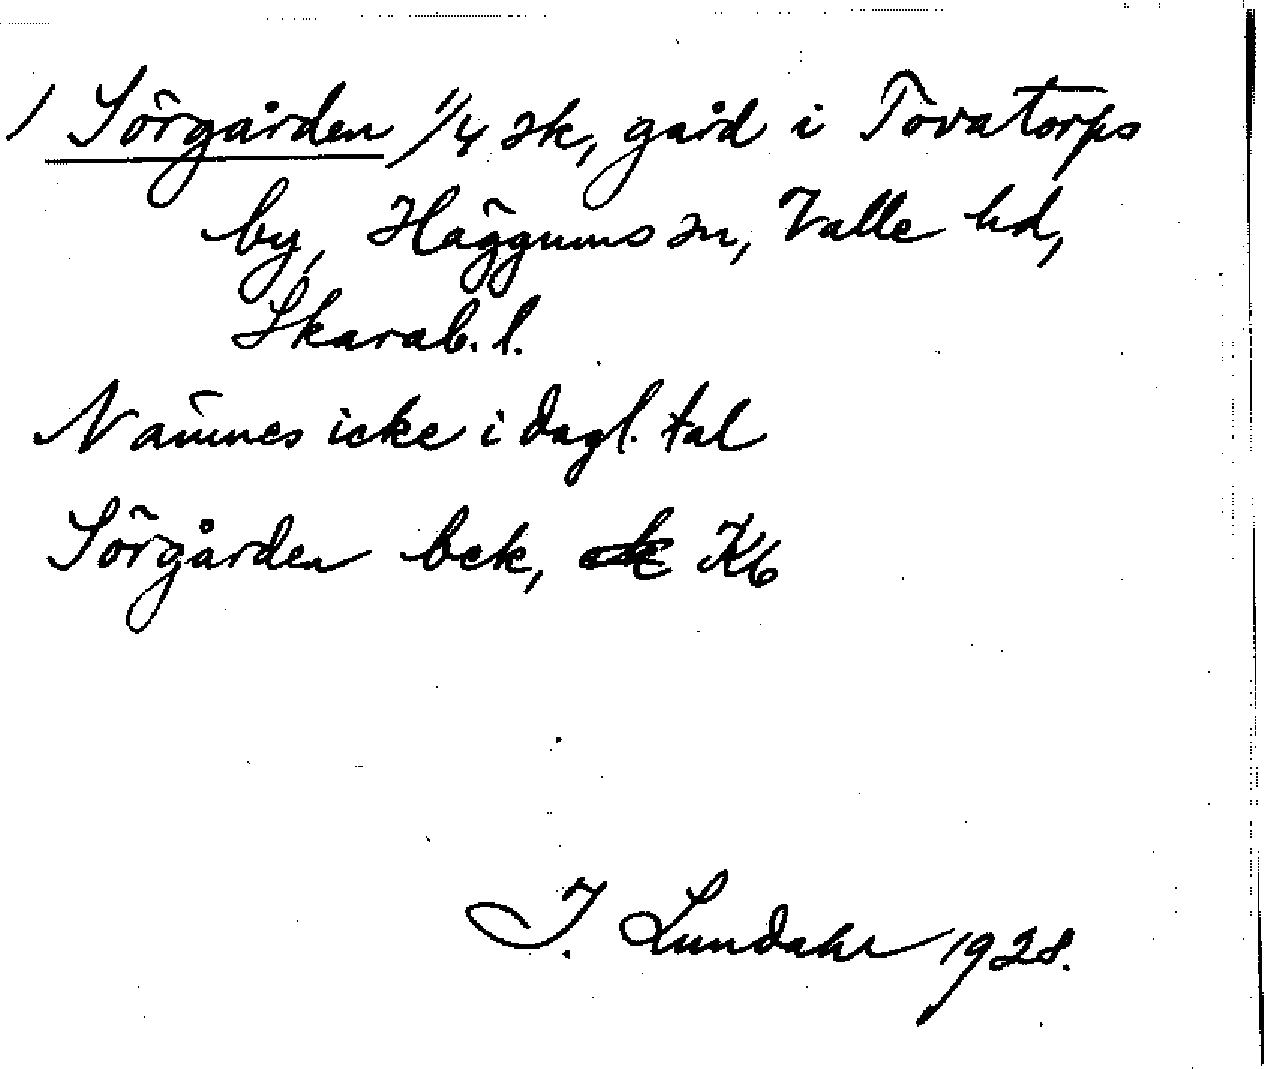 / Sörgården 1/4 sk, gård i Tovatorps
by, Häggums sn, Valle hd,
Skarab. l.
Nämnes icke i dagl. tal
Sörgården bek, Kb
I. Lundahl 1928.